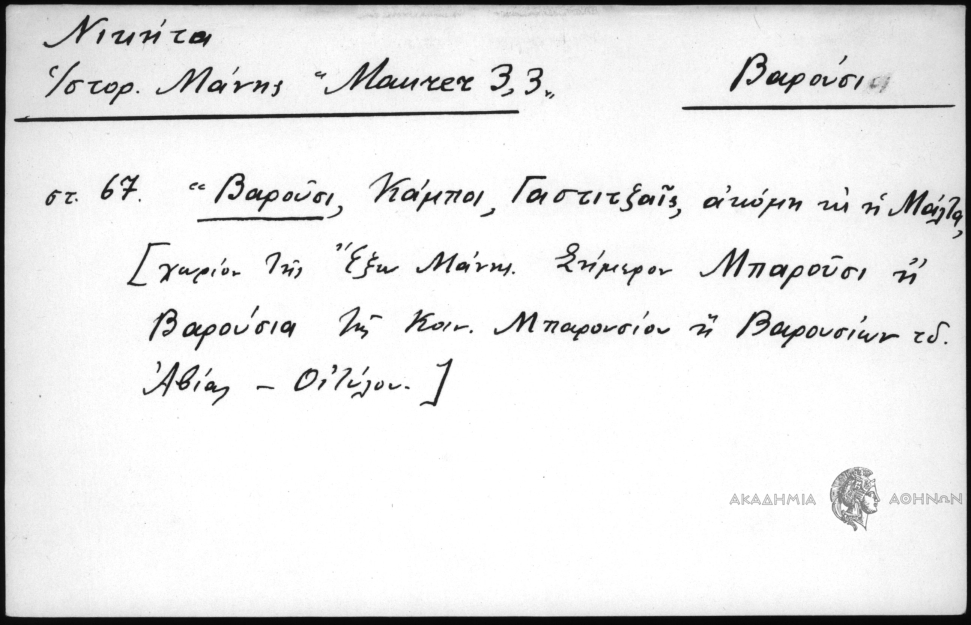 Νικήτα
Ἱστορ. Μάνης "Maurer 3,3„
Βαρούσια
στ. 67. "Βαροῦσι, Κάμποι, Γαστιτζαῖς, ἀκόμη κι ἡ Μάλτα,
[χωρίον τῆς Ἔξω Μάνης. Σήμερον Μπαροῦσι ἢ
Βαρούσια τῆς Κοιν. Μπαρουσίου ἢ Βαρουσίων τ. δ.
Ἀβίας – Οἰτύλου.]
ΑΚΑΔΗΜΙΑ ΑΘΗΝΩΝ